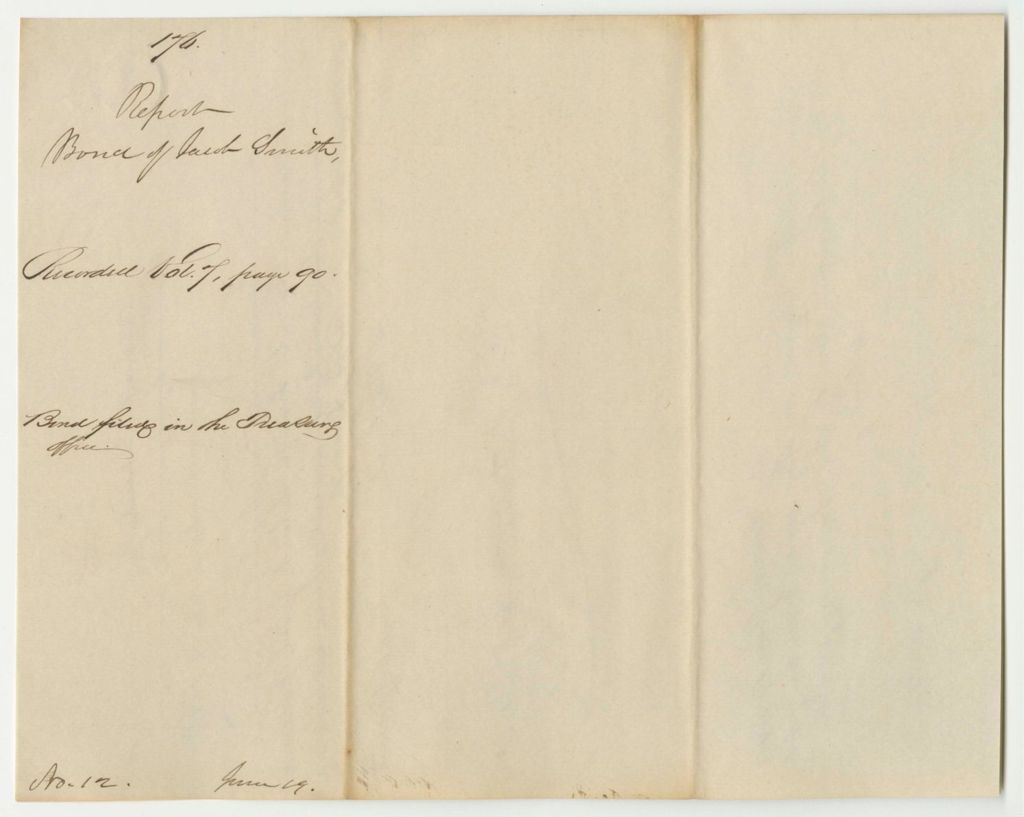 176.
Report
Bond of Jacob Smith,
Recorded Vol. 7, page 90.
Bond filed in the Treasury
office.
No. 12.
June 19.